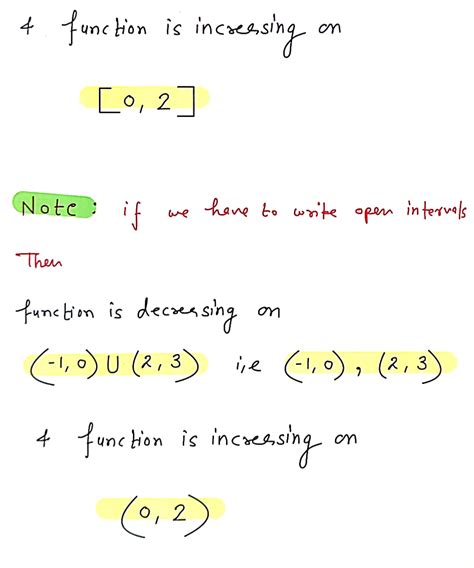 & function is increasing on
[0, 2]
Note: if we have to write open intervals
Then
function is decreasing on
(-1, 0) U (2, 3) i,e (-1, 0), (2, 3)
& function is increasing on
(0, 2)